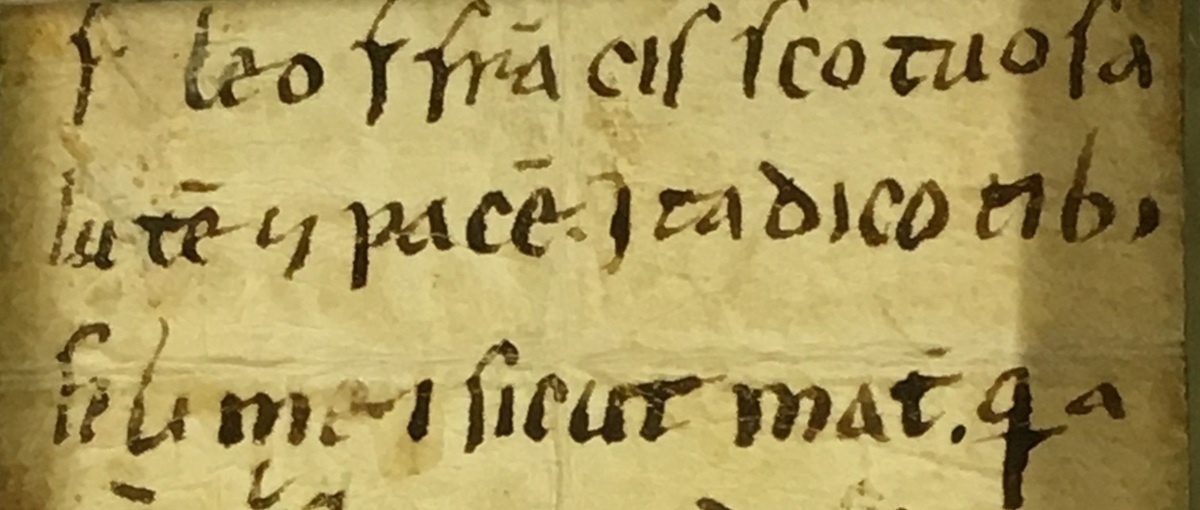 f leo f frācissco tuo sa
lutē ⁊ pacē. Ita dico tibi
fili mei sicut mat̄. qa